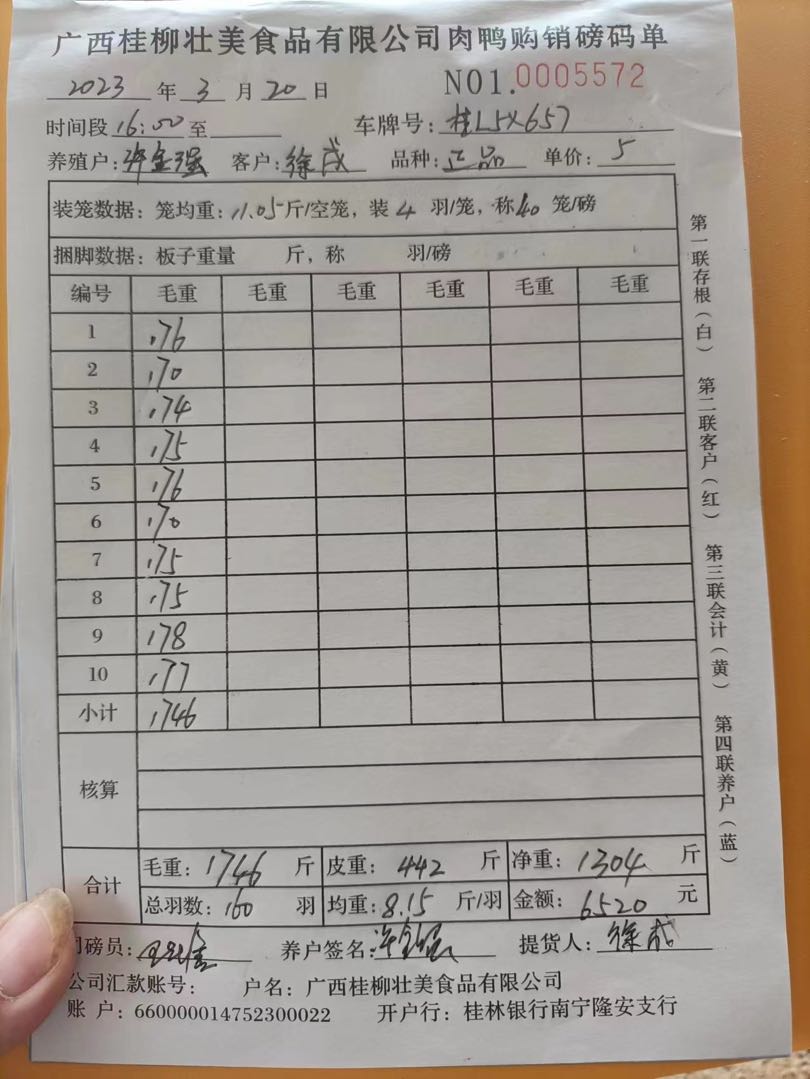 广西桂柳壮美食品有限公司肉鸭购销磅码单
2023 年 3 月 20 日 NO1.0005572
时间段 16:00 至 车牌号: 桂L5X657
养殖户: 许金强 客户: 徐成 品种: 正品 单价: 5
装笼数据: 笼均重: 11.05 斤/空笼, 装 4 羽/笼, 称 40 笼/磅
捆脚数据: 板子重量 斤, 称 羽/磅
编号 毛重 毛重 毛重 毛重 毛重 毛重
1 176
2 170
3 174
4 175
5 176
6 170
7 175
8 175
9 178
10 177
小计 1746
核算
合计
毛重: 1746 斤 皮重: 442 斤 净重: 1304 斤
总羽数: 160 羽 均重: 8.15 斤/羽 金额: 6520 元
磅员: 养户签名: 提货人: 徐成
公司汇款账号: 户名: 广西桂柳壮美食品有限公司
账 户: 660000014752300022 开户行: 桂林银行南宁隆安支行
第一联存根(白) 第二联客户(红) 第三联会计(黄) 第四联养户(蓝)